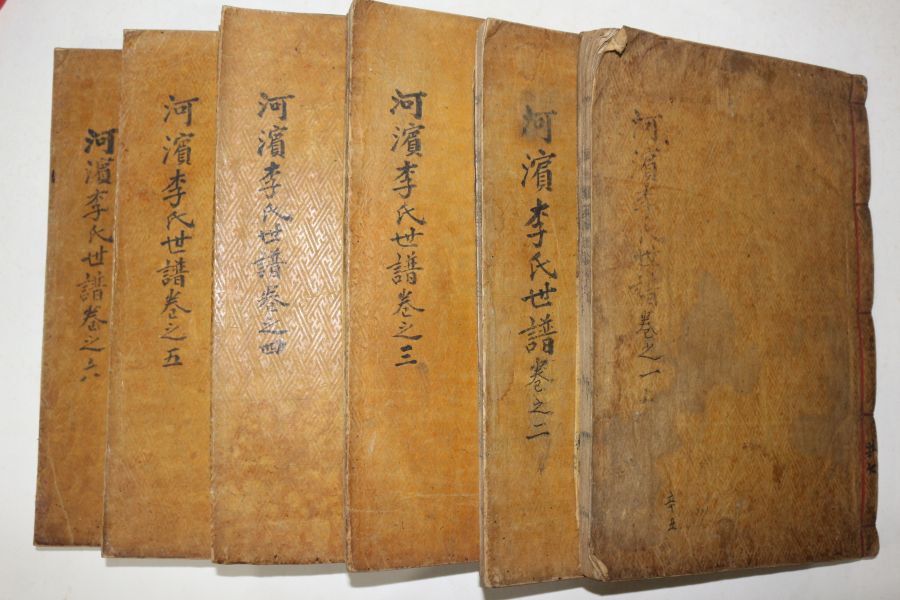 河濱李氏世譜卷之一
辛丑
河濱李氏世譜卷之二
河濱李氏世譜卷之三
河濱李氏世譜卷之四
河濱李氏世譜卷之五
河濱李氏世譜卷之六